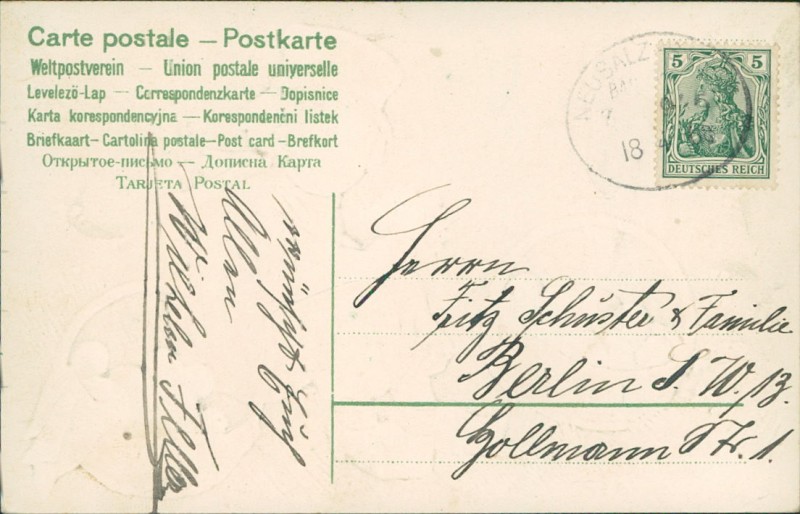 Carte postale — Postkarte
Weltpostverein — Union postale universelle
Levelezö-Lap — Correspondenzkarte — Dopisnice
Karta korespondencyjna — Korespondenční listek
Briefkaart — Cartolina postale — Post card — Brefkort
Открытое-письмо — Дописна Карта
TARJETA POSTAL
NEUSALZ
18 4
5 5
DEUTSCHES REICH
Herrn
Fritz Schuster & Familie
Berlin S. W. 13.
Hollmann Str. 1.
wünscht Euch
Allen
Wilhelm